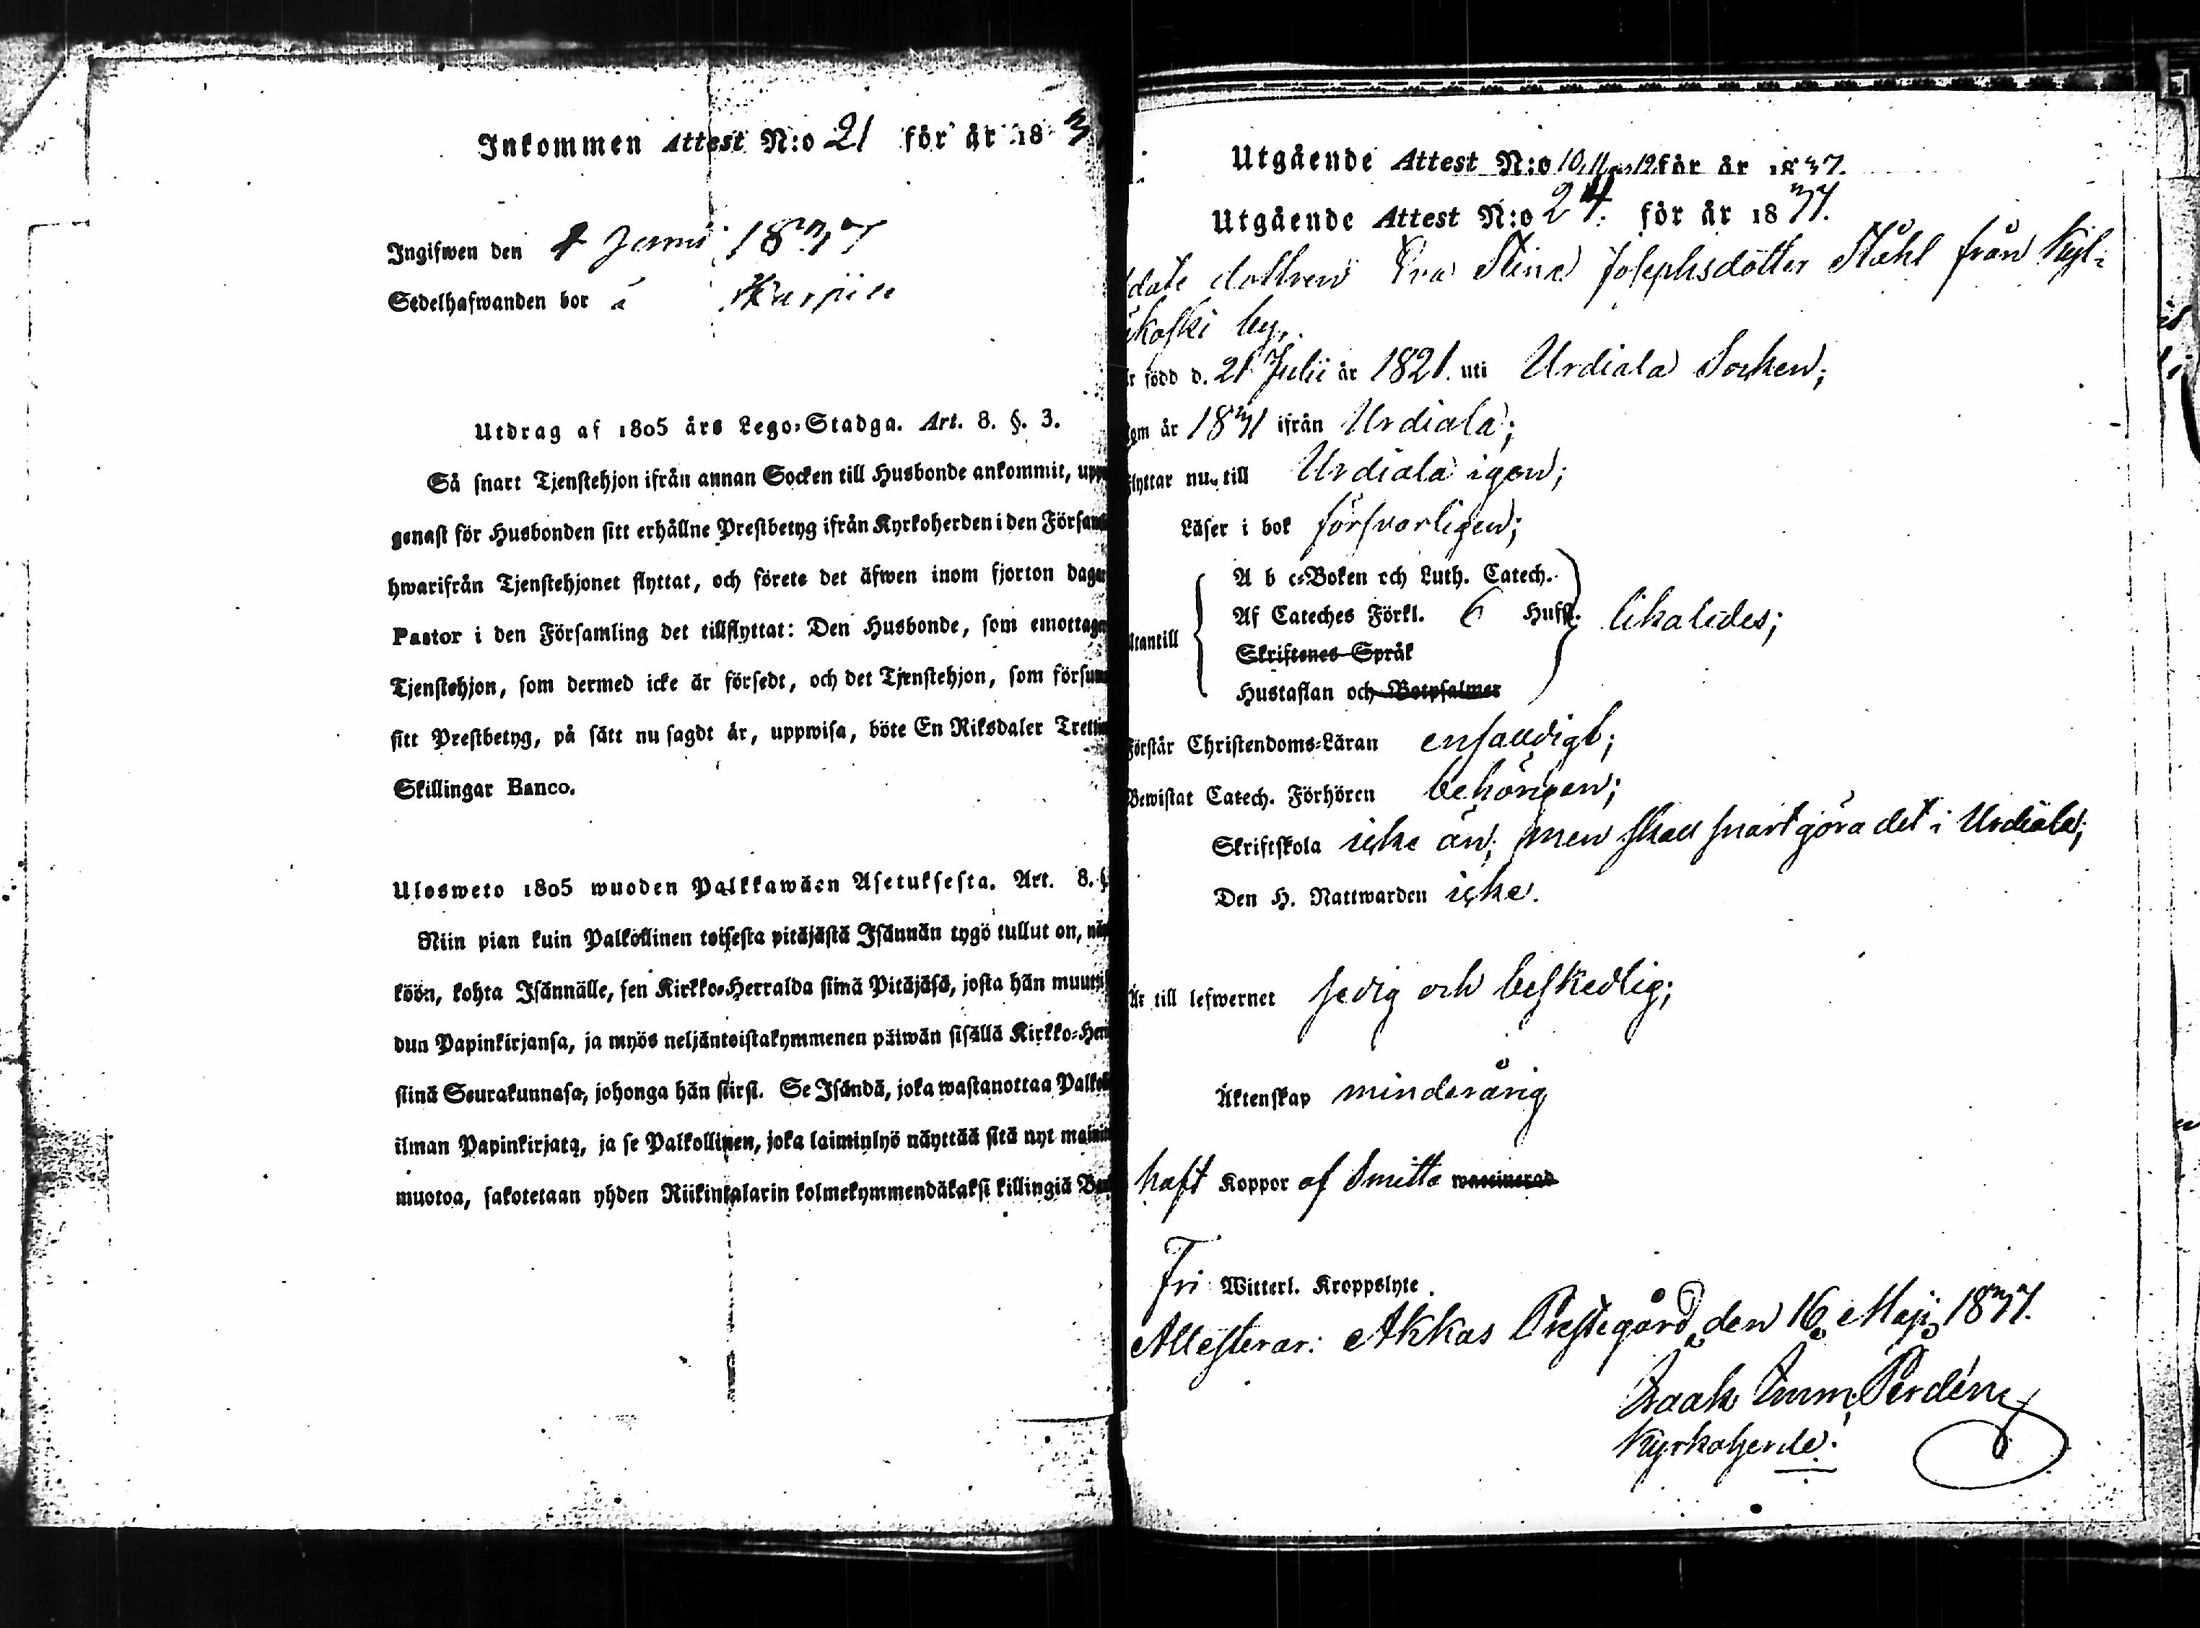 Inkommen Attest N:o 21 för år 183
Ingifwen den 4 Junii 1837
Sedelhafwanden bor i
Utdrag af 1805 års Lego-Stadga. Art. 8. §. 3.
Så snart Tjenstehjon ifrån annan Socken till Husbonde ankommit, upp
genast för Husbonden sitt erhållne Prestbetyg ifrån Kyrkoherden i den Försam
hwarifrån Tjenstehjonet flyttat, och förete det äfwen inom fjorton dagar
Pastor i den Församling det tillflyttat: Den Husbonde, som emottager
Tjenstehjon, som dermed icke är försedt, och det Tjenstehjon, som försum
sitt Prestbetyg, på sätt nu sagdt är, uppwisa, böte En Riksdaler Trettio
Skillingar Banco.
Ulosweto 1805 wuoden Palkkawäen Asetuksesta. Art. 8. §.
Niin pian kuin Palkollinen toisesta pitäjästä Isännän tygö tullut on, näy
köön, kohta Isännälle, sen Kirkko-Herralda siinä Pitäjäsä, josta hän muutti
dun Papinkirjansa, ja myös neljäntoistakymmenen päiwän sisällä Kirkko-Her
siinä Seurakunnasa, johonga hän siirsi. Se Isändä, joka wastanottaa Palkol
ilman Papinkirjata, ja se Palkollinen, joka laiminlyö näyttää sitä nyt mainit
muotoa, sakotetaan yhden Riikintalarin kolmekymmendäkaksi killingiä Ban
Utgående Attest N:o 10, 11 o 12 för år 1837.
Utgående Attest N:o 24. för år 1837.
dottren Eva Stina Josephsdotter Ståhl från Kyl-
koski by,
är född d. 21 Julii år 1821. uti Urdiala Socken;
kom år 1831 ifrån Urdiala;
flyttar nu till Urdiala igen;
Läser i bok försvarligen;
A b c-Boken och Luth. Catech.
Af Cateches Förkl. 6 Hufst. likaledes;
utantill
Skriftenes Språk
Hustaflan och Botpsalmer
Förstår Christendoms-Läran enfaldigt;
Bewistat Catech. Förhören behörigen;
Skriftskola icke än; men skall snart göra det i Urdiala;
Den H. Nattwarden icke.
Är till lefwernet sedig och beskedlig;
Äktenskap minderårig
haft Koppor af Smitta waccinerad
Fri Witterl. Kroppslyte.
Attesterar: Akkas Prestegård den 16 Maji 1837.
Isaak Imm. Perdén
Kyrkoherde.